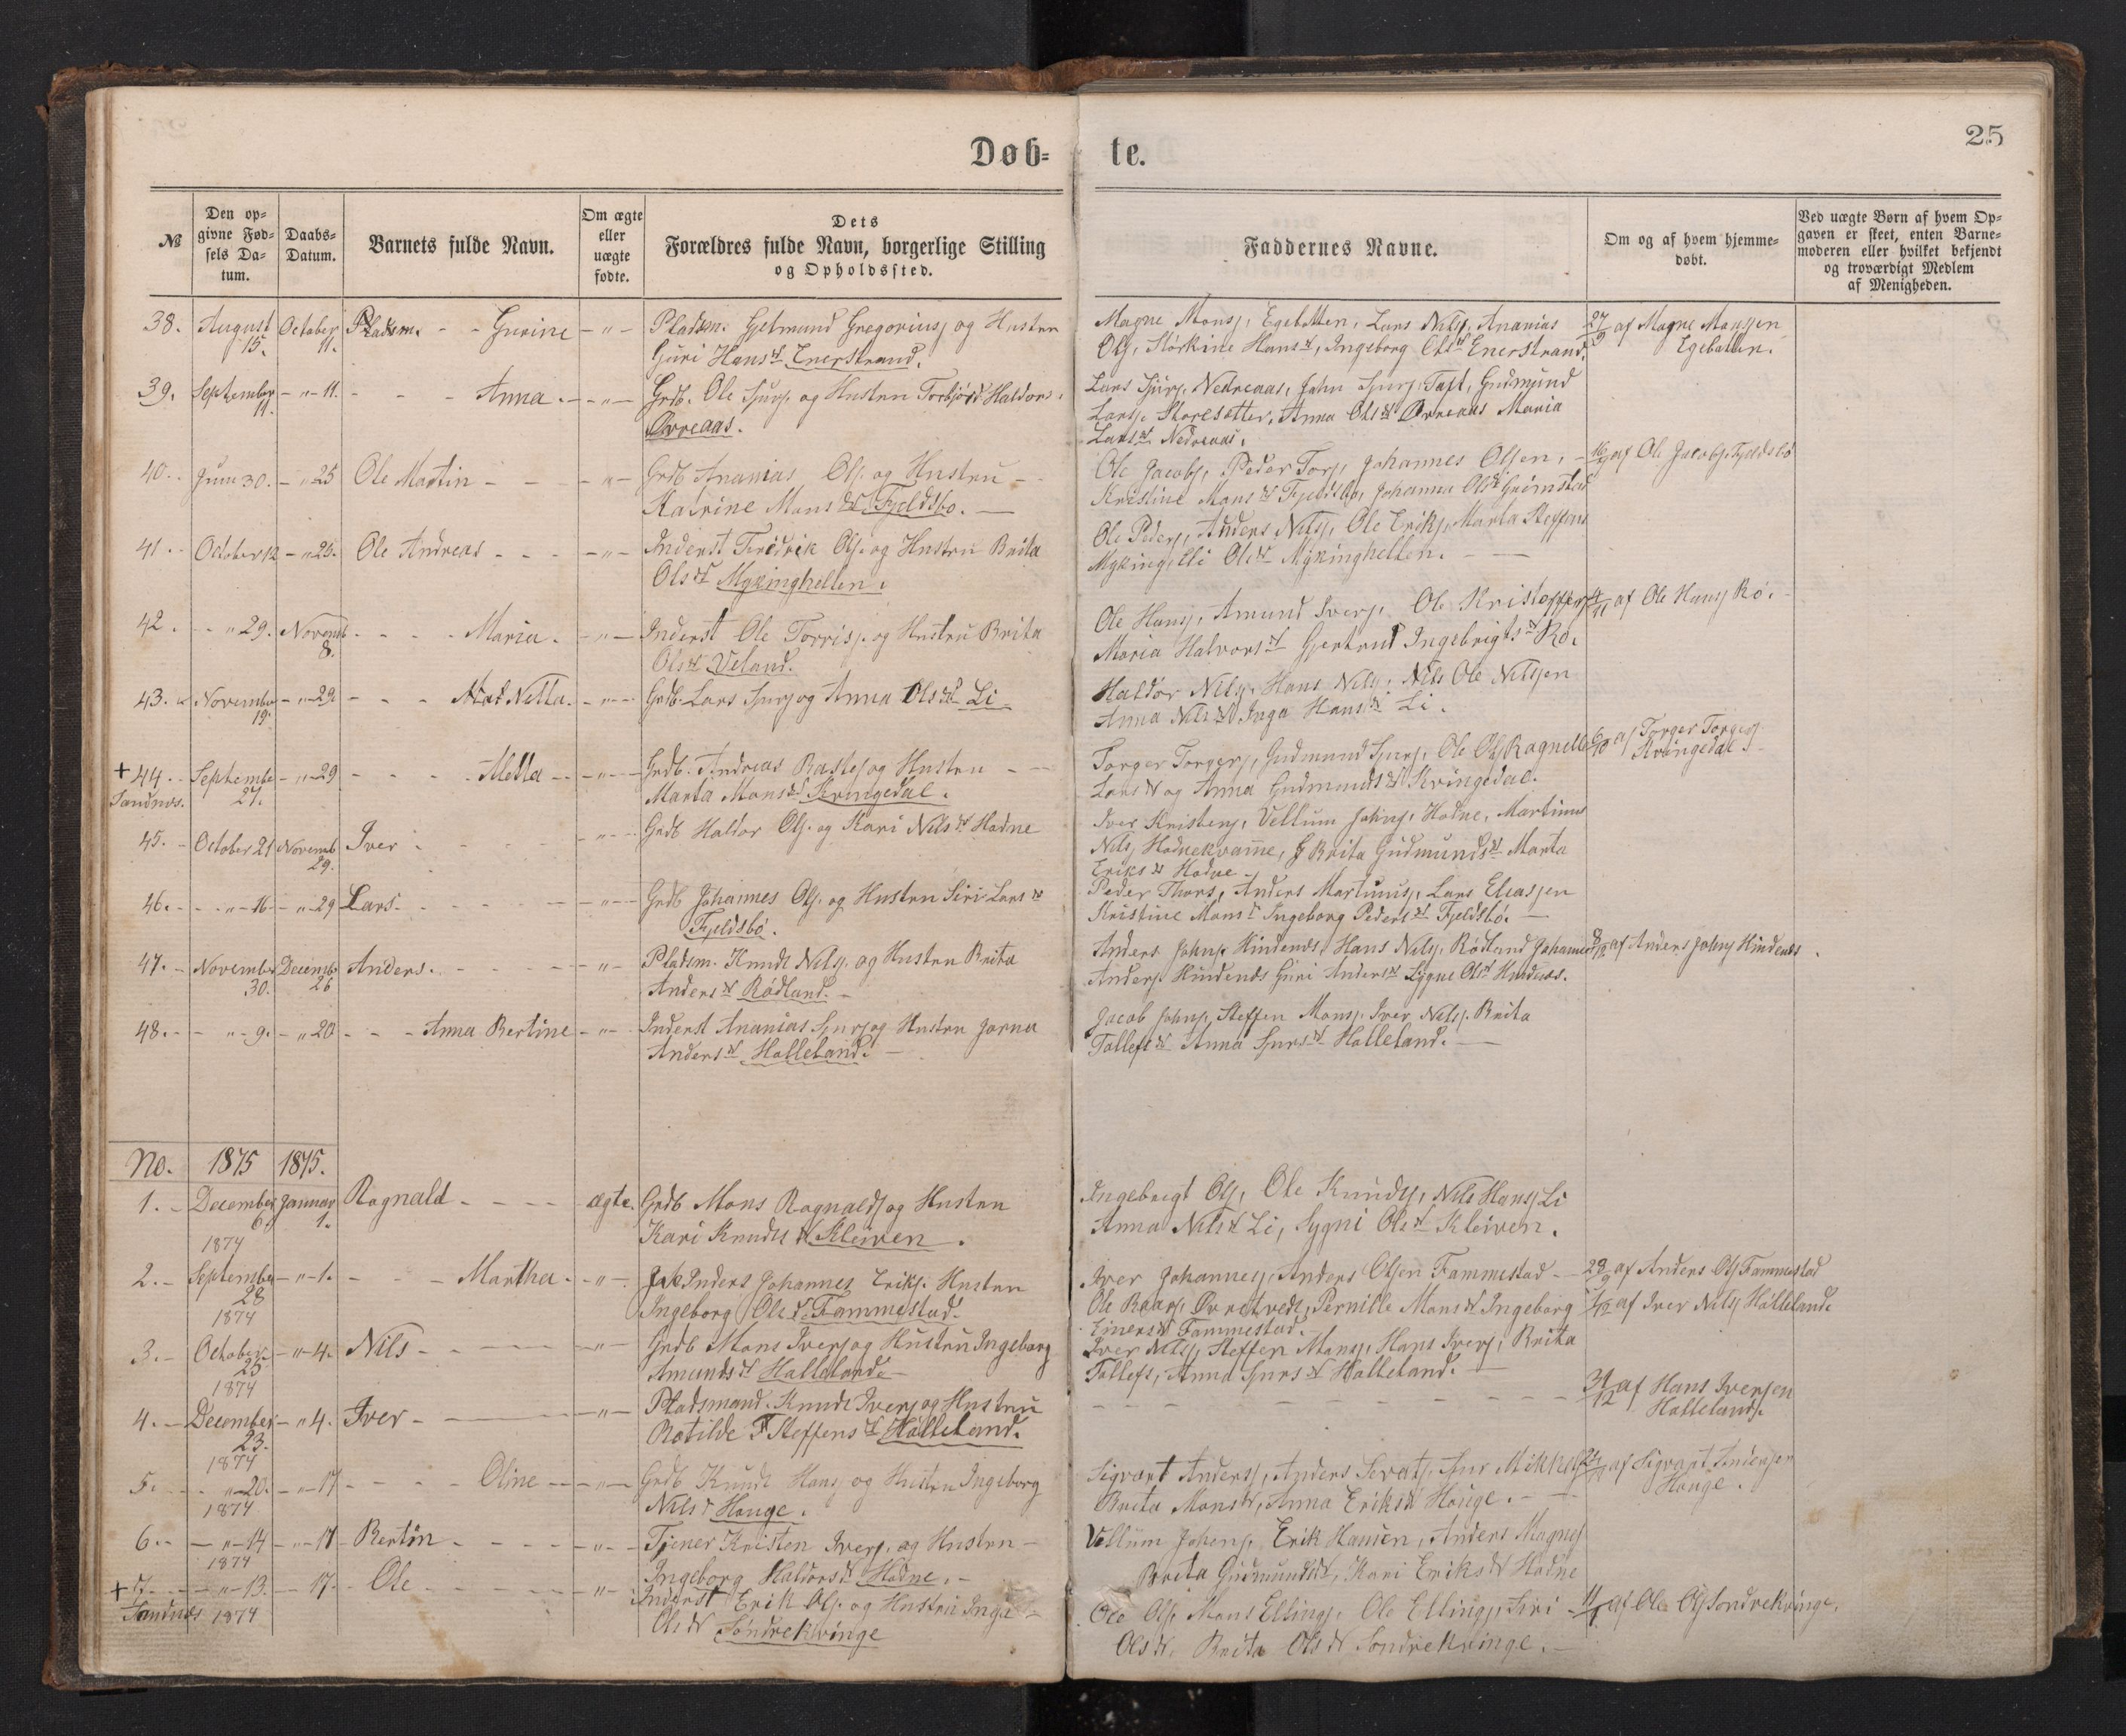 Døb-
te.
25
№
Den op-
givne Fød-
sels Da-
tum.
Daabs-
Datum.
Barnets fulde Navn.
Om ægte
eller
uægte
fødte.
Dets
Forældres fulde Navn, borgerlige Stilling
og Opholdssted.
Faddernes Navne.
Om og af hvem hjemme-
døbt.
Ved uægte Børn af hvem Op-
gaven er skeet, enten Barne-
moderen eller hvilket bekjendt
og troværdigt Medlem
af Menigheden.
38. August 15. October 11. Gurine -"- Pladsm. Gjetmund Gregoriusj og Hustru
Guri Hansd Enerstrand.
Magne Monsj. Egebotten, Lars Nilsj, Ananias
Olsj, Hansd, Ingeborg Olsd Enerstrand.
27/9 af Magne Monsjen
Egebotten.
39. September 11. -"-11. Anna. -"- Grdb. Ole Sjursj. og Hustru Haldors
Øvreaas.
Lars Sjursj. Nedreaas, John Sjursj, Gudmund
Larsj. Storesetter, Anna Olsd Øvreaas Maria
Larsd Nedreaas.
40. Juni 30. -"-25 Ole Martin -"- Grdb Ananias Olsj. og Hustru
Katrine Monsd Fjeldsbo.
Ole Jacobsj, Peder Torsj, Johannes Olsen,
Kristine Monsd Fjeldsbo, Johanna Olsd Grimstad
af Ole Jacobsj. Fjeldsbo
41. October 12 -"-25. Ole Andreas -"- Inderst Fredrik Olsj. og Hustru Brita
Olsd Mykinghellen.
Ole Pedersj, Anders Nilsj, Ole Eriksj, Marta Steffens
Myking, Olsd Mykinghellen.
42. -"-29. Novemb 8. Maria. -"- Inderst Ole Torrisj. og Hustru Brita
Olsd Veland.
Ole Hansj, Amund Iversj. Ole Kristoffersj
Maria Halvorsd Gjertrud Ingebrigtsd Rø.
4/11 af Ole Hansj Rø.
43. November 19. -"-29 Netta. -"- Grdb. Lars Sjursj og Anna Olsd Li
Haldor Nilsj. Hans Nilsj. Nils Ole Nilsjen
Anna Nilsd Inga Hansd Li.
+44. Sandnes. September 27. -"-29 Metta -"- Grdb. Andreas Rastesj og Hustru
Marta Monsd Kvingedal.
Torger Torgersj, Gudmund Sjursj, Ole Olsj Ragnilde
Larsd og Anna Gudmundsd Kvingedal.
af Torger Torgersj
Kvingedal
45. October 21 Novemb 29. Iver -"- Grdb Haldor Olsj. og Kari Nilsd Hodne
Iver Kristensj, Vellum Johnsj, Hodne, Martinus
Nilsj Hodnekvamme, Brita Gudmundsd Marta
Eriksd Hodne
46. -"-16 -"-29 Lars. -"- Grdb Johannes Olsj. og Hustru Siri Larsd
Fjeldsbø.
Peder Thors, Anders Martinusj, Lars Eliasjen
Kristine Monsd Ingeborg Pedersd Fjeldsbø.
47. November 30. Decemb 26 Anders. -"- Pladsm. Knud Nilsj. og Hustru Brita
Andersd Rødland.
Anders Johnsj. Hindenes, Hans Nilsj, Rødland Johannes
Andersj. Hindenes Guri Andersd Olsd Hindenes.
af Anders Johnsj Hindenes
48. -"-9. -"-20 Anna Bertine -"- Inderst Ananias Sjursj og Hustru
Andersd Halleland.
Jacob Johnsj, Steffen Monsj. Iver Nilsj. Brita
Tollefsd Anna Sjursd Halleland.
No. 1875 1875.
1. December 6. 1874 Januar 1. Ragnald ægte. Grdb Mons Ragnaldsj og Hustru
Kari Knudsd Kleiven.
Ingebrigt Olsj, Ole Knudsj, Nils Hansj Li
Anna Nilsd Li, Sygni Olsd Kleiven.
2. September 28 1874 -"-1. Martha. -"- Inders Johannes Eriksj. Hustru
Ingeborg Olsd Fammestad.
Iver Johannesj, Anders Olsen Fammestad
Ole Pernille Monsd Ingeborg
Einersd Fammestad.
28/9 af Anders Olsj Fammestad
af Iver Nilsj Halleland.
3. October 25 1874 -"-4. Nils -"- Grdb Mons Iversj og Hustru Ingeborg
Amundsd Halleland
Iver Nilsj, Steffen Monsj, Hans Iversj, Brita
Tollefs, Anna Sjursd Halleland.
4. December 23. 1874 -"4. Iver -"- Pladsmand. Knud Iversj og Hustru
Botilde Steffensd Halleland.
31/12 af Hans Iversen
Halleland.
5. -"-20. 1874 -"-17 Oline -"- Grdb Knud Hansj og Hustru Ingeborg
Nilsd Houge.
Sigvart Andersj, Anders Mikkelsj
Brita Monsd, Anna Eriksd Houge.
af Sigvart Andersjen
Houge.
6. -"-14 1874 -"-17 Bertin -"- Tjener Kristen Iversj. og Hustru
Ingeborg Haldorsd Hodne.
Vellum Johnsj, Erik Hansen, Anders Magnesj
Brita Gudmundsd, Kari Eriksd Hodne
+7. Sandnes -"-13. 1874 17. Ole -"- Inderst Erik Olsj. og Hustru Inga
Olsd Søndrekvinge
Ole Olsj. Mons Ellingsj. Ole Ellingsj, Siri
Olsd. Brita Olsd Søndrekvinge.
af Ole Olsj Søndrekvinge.